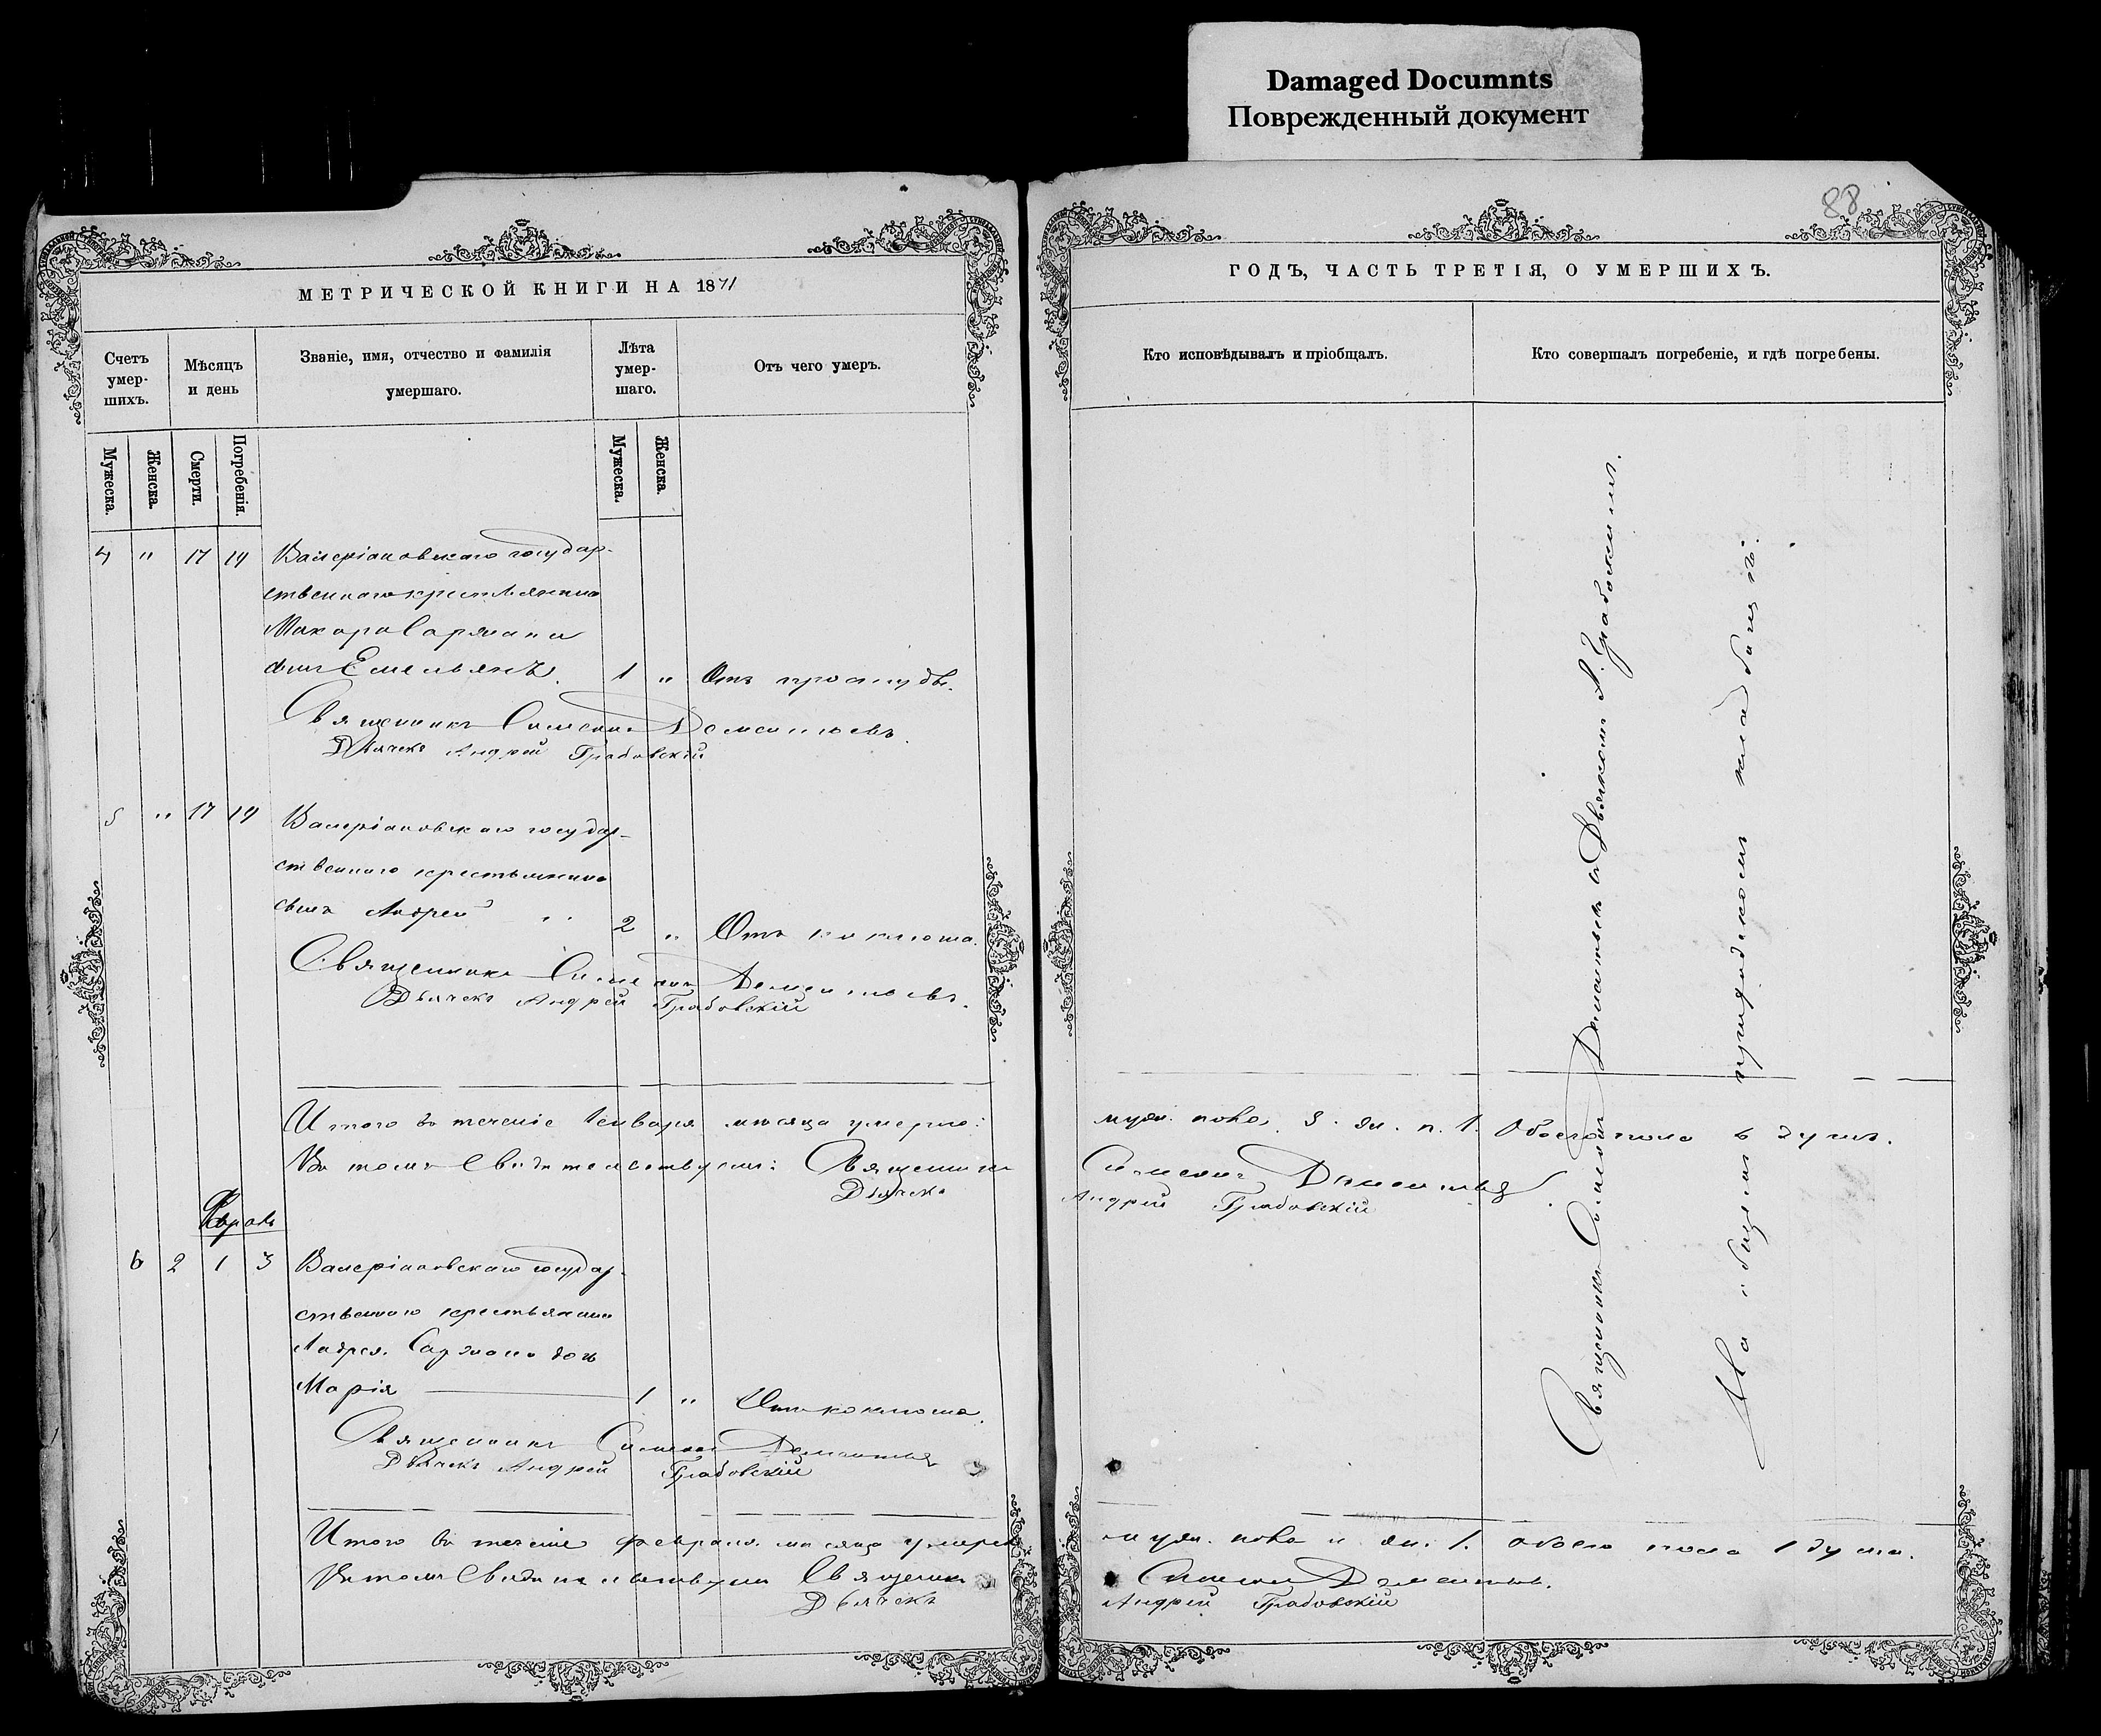 Damaged Documnts
Поврежденный документ
88
МЕТРИЧЕСКОЙ КНИГИ НА 1871
ГОДЪ, ЧАСТЬ ТРЕТІЯ, О УМЕРШИХЪ.
Счетъ умер-шихъ.
Мѣсяцъ и день
Званіе, имя, отчество и фамилія
умершаго.
Лѣта умер-шаго.
Отъ чего умеръ.
Кто исповѣдывалъ и пріобщалъ.
Кто совершалъ погребеніе, и гдѣ погребены.
Мужеска.
Женска.
Смерти.
Погребенія.
Мужеска.
Женска.
4 " 17 19 Валеріановскаго государ-
ственнаго крестьянина
Макара Сармана
сынъ Емельянъ. 1 " Отъ простуды.
Священникъ Симеонъ Дементьевъ.
Дьячекъ Андрей Грабовскій
5 " 17 19 Валеріановскаго государ-
ственнаго крестьянина
сынъ Андрей 2 " Отъ коклюша.
Священникъ Симеонъ Дементьевъ.
Дьячекъ Андрей Грабовскій
Итого въ теченіе Января мѣсяца умерло:
муж. пола. 5. жи. п. 1. Обоего пола 6 душъ.
Въ томъ Свидѣтельствуемъ: Священникъ
Симеонъ Дементьевъ
Дьячекъ
Андрей Грабовскій
Февраль
6 2 1 3 Валеріановскаго государ-
ственнаго крестьянина
Андрея Сармана дочь
Марія 1 " Отъ коклюша.
Священникъ Симеонъ Дементьевъ
Дьячекъ Андрей Грабовскій
Итого въ теченіе февраля мѣсяца умерло
муж. пола и жи. 1. обоего пола 1 душа.
Въ томъ Свидѣтельствуемъ Священникъ
Симеонъ Дементьевъ.
Дьячекъ
Андрей Грабовскій
Священникъ Симеонъ Дементьевъ съ Дьячкомъ А. Грабовскимъ.
На общемъ приходскомъ кладбищѣ.